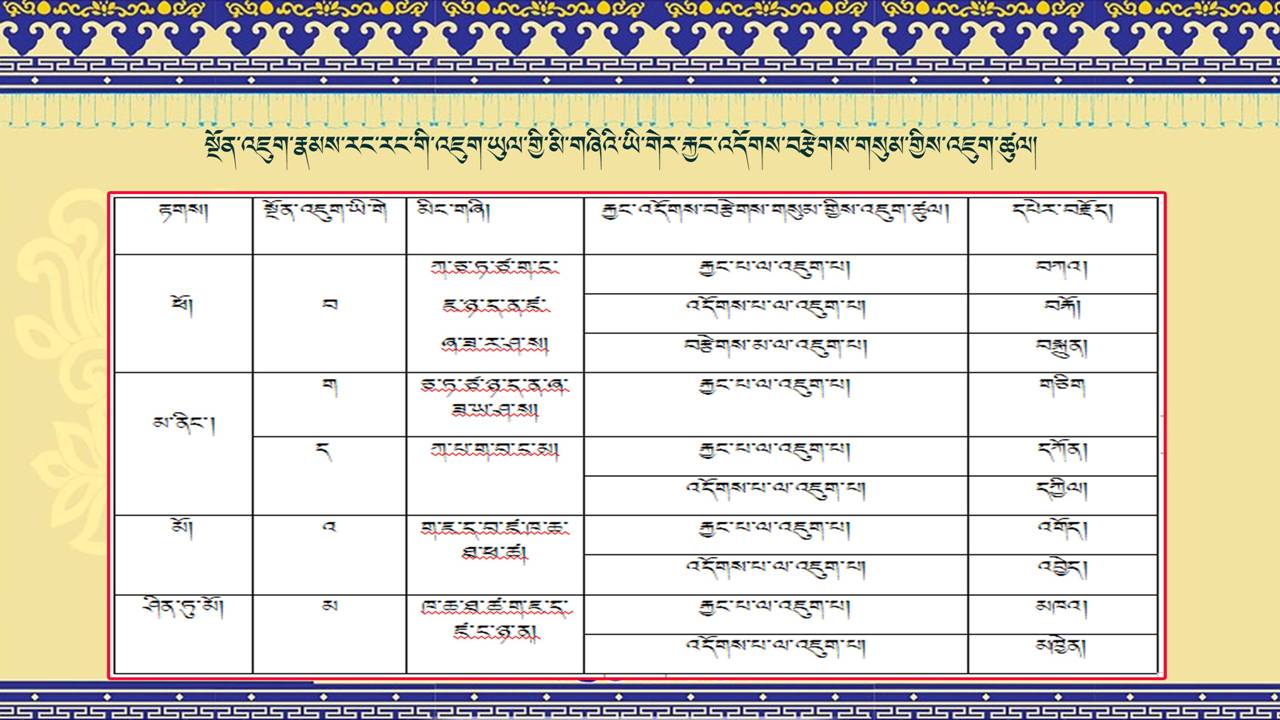 སྔོན་འཇུག་རྣམས་རང་རང་གི་འཇུག་ཡུལ་གྱི་མི་གཞིའི་ཡི་གེར་རྐྱང་འདོགས་བརྩེགས་གསུམ་གྱིས་འཇུག་ཚུལ།
རྟགས། སྔོན་འཇུག་ཡི་གེ མིང་གཞི། རྐྱང་འདོགས་བརྩེགས་གསུམ་གྱིས་འཇུག་ཚུལ། དཔེར་བརྗོད།
ཀ་ཅ་ཏ་ཙ་ག་ང་ རྐྱང་པ་ལ་འཇུག་པ། བཀའ།
ཕོ། བ ཇ་ཉ་ད་ན་ཛ་ འདོགས་པ་ལ་འཇུག་པ། བརྐོ།
ཞ་ཟ་ར་ཤ་ས། བརྩེགས་མ་ལ་འཇུག་པ། བསྐྲུན།
ག ཅ་ཏ་ཙ་ཉ་ད་ན་ཞ་ རྐྱང་པ་ལ་འཇུག་པ། གཅིག
ཟ་ཡ་ཤ་ས།
མ་ནིང་།
ད ཀ་པ་ག་བ་ང་མ། རྐྱང་པ་ལ་འཇུག་པ། དཀོན།
འདོགས་པ་ལ་འཇུག་པ། དཀྱིལ།
མོ། འ ག་ཇ་ད་བ་ཛ་ཁ་ཆ་ རྐྱང་པ་ལ་འཇུག་པ། འགོད།
ཐ་ཕ་ཚ། འདོགས་པ་ལ་འཇུག་པ། འབྱེད།
ཤིན་ཏུ་མོ། མ ཁ་ཆ་ཐ་ཚ་ག་ཇ་ད་ རྐྱང་པ་ལ་འཇུག་པ། མཁའ།
ཛ་ང་ཉ་ན། འདོགས་པ་ལ་འཇུག་པ། མཁྱེན།